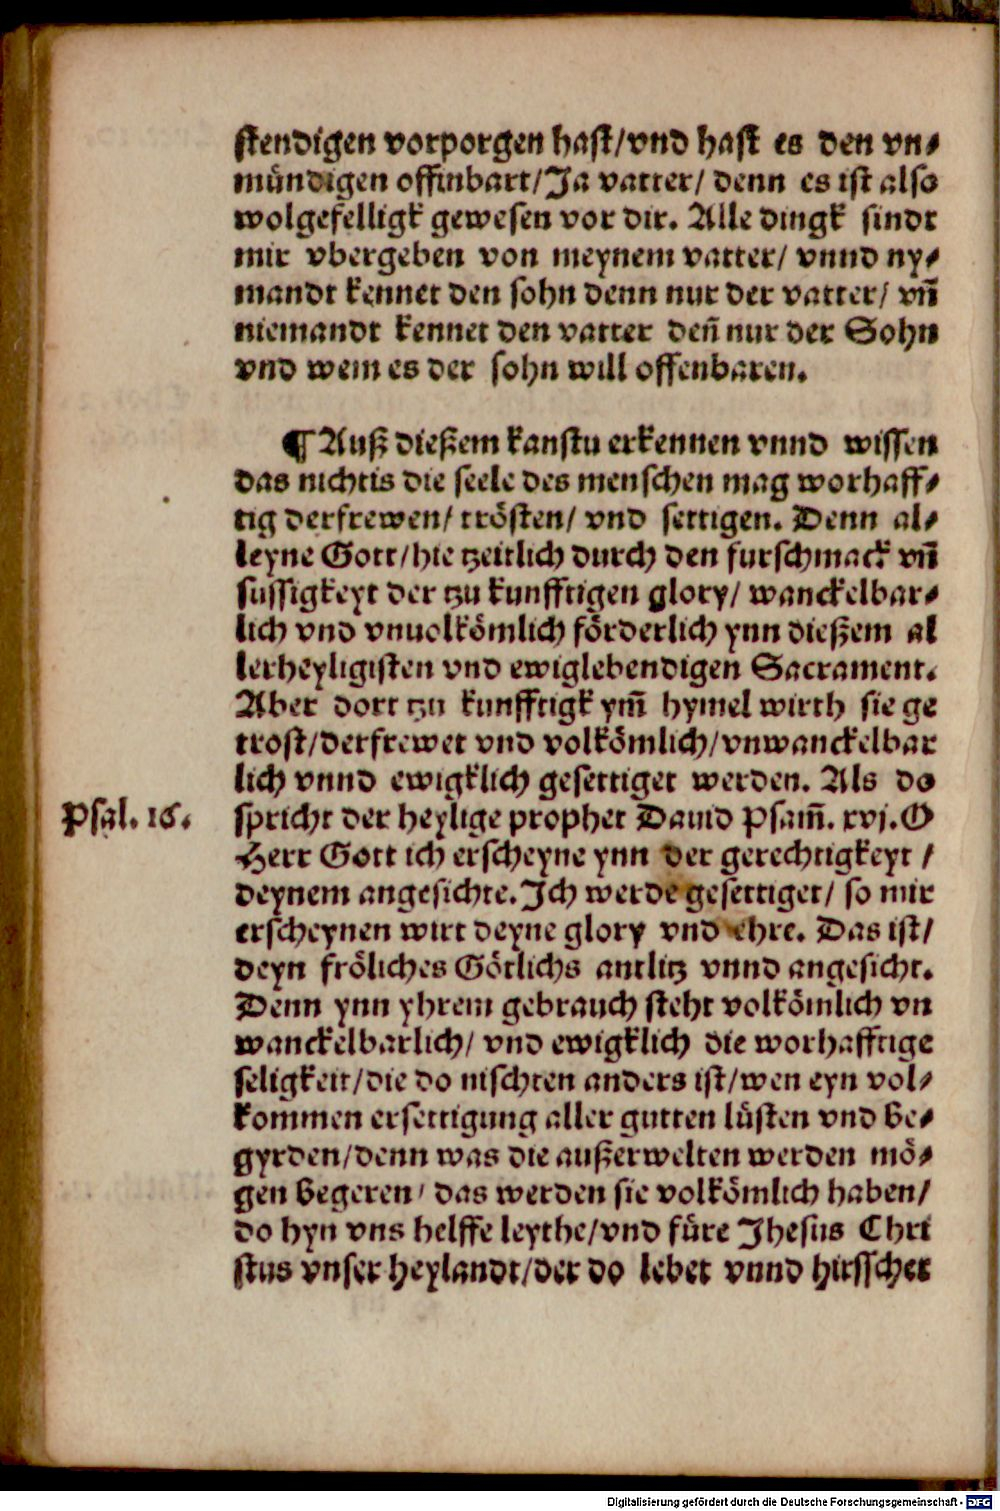 stendigen vorporgen hast/vnd hast es den vn⸗
mündigen offinbart/Ja vatter/ denn es ist also
wolgefelligk gewesen vor dir. Alle dingk sindt
mir vbergeben von meynem vatter/ vnnd ny⸗
mandt kennet den sohn denn nur der vatter/ vñ
niemandt kennet den vatter deñ nur der Sohn
vnd wem es der sohn will offenbaren.
¶ Auß dießem kanstu erkennen vnnd wissen
das nichtis die seele des menschen mag worhaff⸗
tig derfrewen/ trösten/ vnd settigen. Denn al⸗
leyne Gott/hie tzeitlich durch den furschmack vñ
sussigkeyt der tzu kunfftigen glory/ wanckelbar⸗
lich vnd vnuolkömlich förderlich ynn dießem al
lerheyligisten vnd ewiglebendigen Sacrament.
Aber dort tzu kunfftigk ym̃ hymel wirth sie ge
trost/derfrewet vnd volkömlich/vnwanckelbar
lich vnnd ewigklich gesettiget werden. Als do
Psal. 16. spricht der heylige prophet Dauid Psam̃. xvj. O
Herr Gott ich erscheyne ynn der gerechtigkeyt /
deynem angesichte. Ich werde gesettiget/ so mir
erscheynen wirt deyne glory vnd ehre. Das ist/
deyn fröliches Götlichs antlitz vnnd angesicht.
Denn ynn yhrem gebrauch steht volkömlich vn
wanckelbarlich/ vnd ewigklich die worhafftige
seligkeit/die do nischten anders ist/wen eyn vol⸗
kommen ersettigung aller gutten lüsten vnd be⸗
gyrden/denn was die außerwelten werden mö⸗
gen begeren/ das werden sie volkömlich haben/
do hyn vns helffe leythe/vnd füre Jhesus Chri
stus vnser heylandt/der do lebet vnnd hirsschet
Digitalisierung gefördert durch die Deutsche Forschungsgemeinschaft - DFG